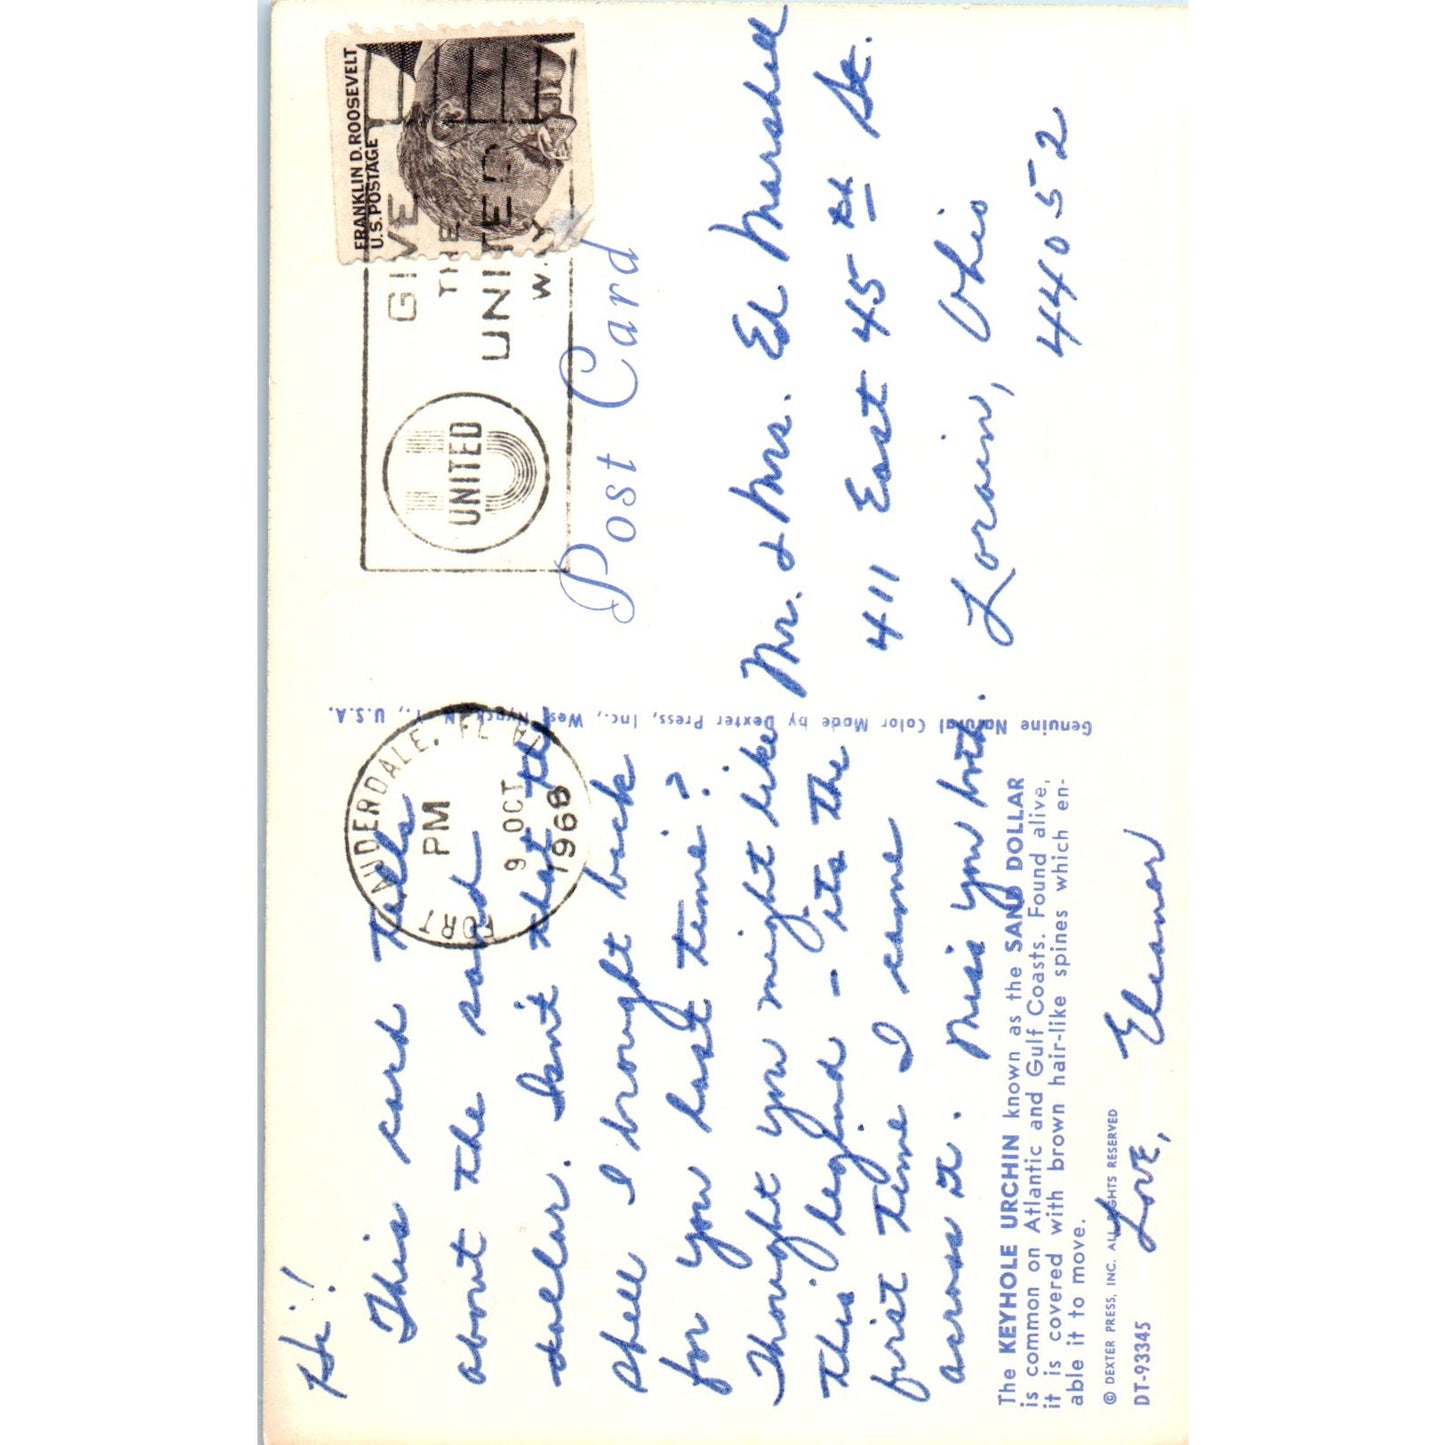 Hi!
This card tells
about the sand
dollar. Isn't that the
shell I brought back
for you last time?
Thought you might like
this legend - its the
first time I came
across it. Miss you both.
Love, Eleanor
The KEYHOLE URCHIN known as the SAND DOLLAR
is common on Atlantic and Gulf Coasts. Found alive,
it is covered with brown hair-like spines which en-
able it to move.
© DEXTER PRESS, INC. ALL RIGHTS RESERVED
DT-93345
Genuine Natural Color Made by Dexter Press, Inc., West Nyack, N. Y., U.S.A.
FORT LAUDERDALE, FL
PM
9 OCT
1968
UNITED
GIVE
THE
UNITED
WAY
FRANKLIN D. ROOSEVELT
U.S. POSTAGE
Post Card
Mr. & Mrs. Ed Marshall
411 East 45 St.
Lorain, Ohio
44052